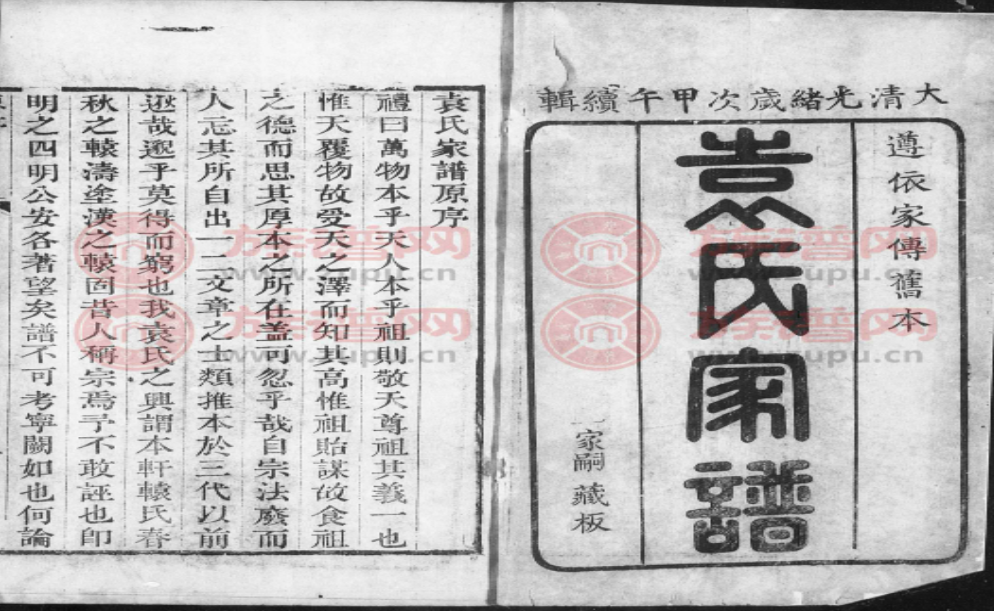 大清光緒歲次甲午續輯
遵依家傳舊本
袁氏家譜
家嗣藏板
袁氏家譜原序
禮曰萬物本乎天人本乎祖則敬天尊祖其義一也
惟天覆物故受天之澤而知其高惟祖貽謀故食祖
之德而思其厚本之所在盖可忽乎哉自宗法廢而
人忘其所自出一二文章之士類推本於三代以前
逖哉邈乎莫得而窮也我袁氏之興謂本軒轅氏春
秋之轅濤塗漢之轅固昔人稱宗焉予不敢誣也即
明之四明公安各著望矣譜不可考寧闕如也何論
族谱网
www.zupu.cn
族谱网
www.zupu.cn
族谱网
www.zupu.cn
族谱网
www.zupu.cn